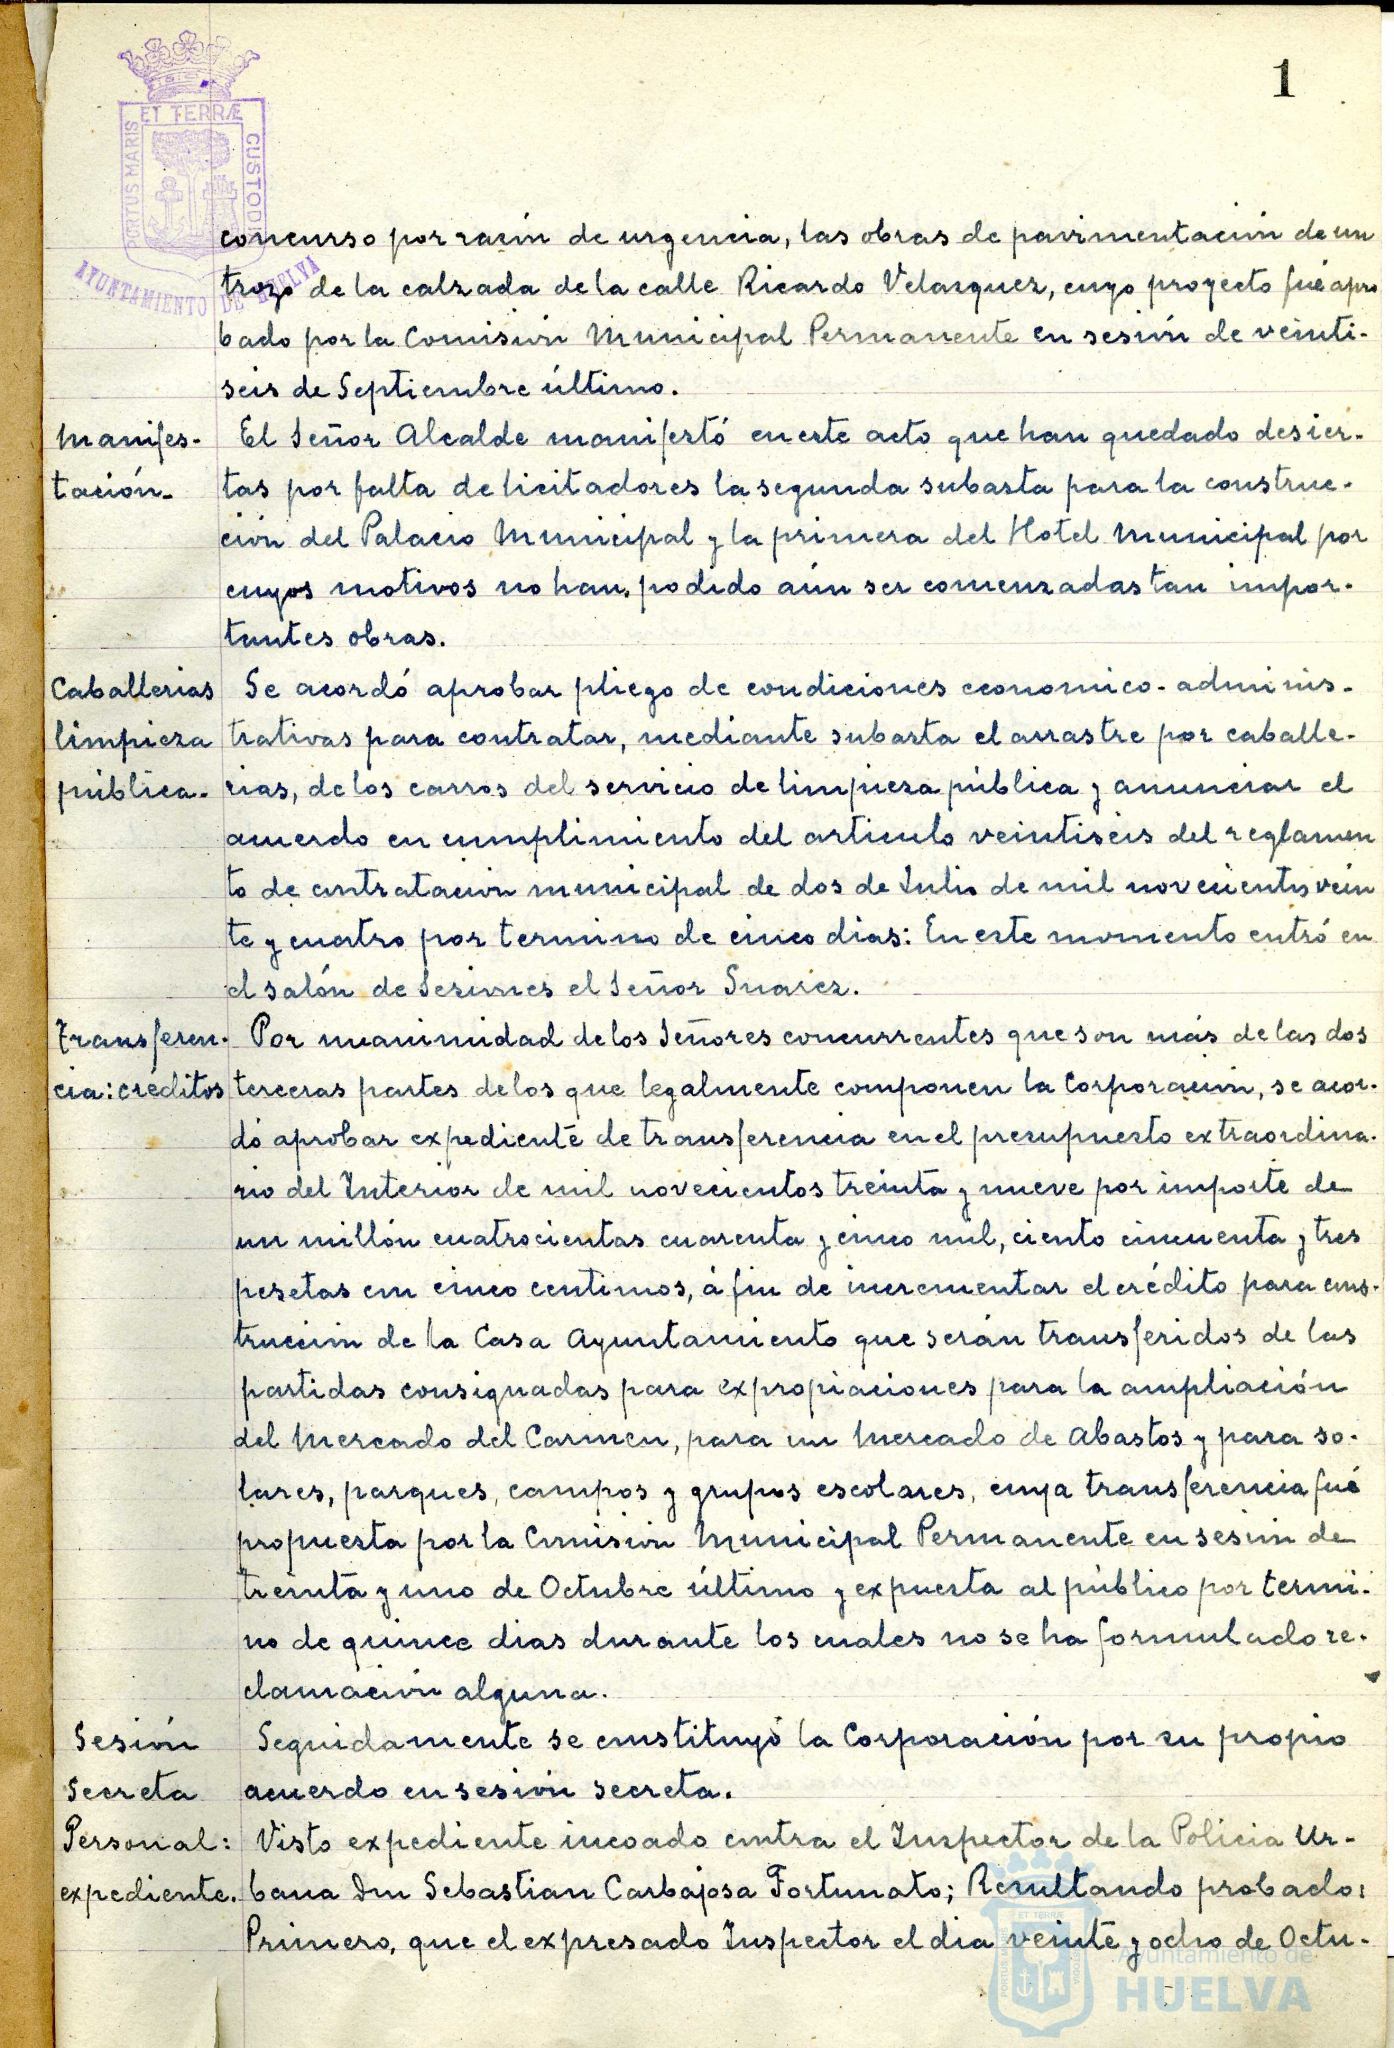 1
ET TERRÆ
PORTUS MARIS
CUSTODIA
AYUNTAMIENTO DE HUELVA
concurso por razón de urgencia, las obras de pavimentación de un
trozo de la calzada de la calle Ricardo Velazquez, cuyo proyecto fué apro
bado por la Comisión Municipal Permanente en sesión de veinti-
seis de Septiembre último.
Manifes-
tación.
El Señor Alcalde manifestó en este acto que han quedado desier-
tas por falta de licitadores la segunda subasta para la construc-
ción del Palacio Municipal y la primera del Hotel Municipal por
cuyos motivos no han podido aún ser comenzadas tan impor-
tantes obras.
Caballerias
limpieza
pública.
Se acordó aprobar pliego de condiciones economico-adminis-
trativas para contratar, mediante subasta el arrastre por caballe-
rias, de los carros del servicio de limpieza pública y anunciar el
acuerdo en cumplimiento del articulo veintiseis del reglamen
to de contratación municipal de dos de Julio de mil novecientos vein
te y cuatro por termino de cinco dias: En este momento entró en
el salón de Sesiones el Señor Suarez.
Transferen-
cia: créditos
Por unanimidad de los Señores concurrentes que son más de las dos
terceras partes de los que legalmente componen la Corporación, se acor-
dó aprobar expediente de transferencia en el presupuesto extraordina-
rio del Interior de mil novecientos treinta y nueve por importe de
un millón cuatrocientas cuarenta y cinco mil, ciento cincuenta y tres
pesetas con cinco centimos, á fin de incrementar el crédito para cons-
trucción de la Casa Ayuntamiento que serán transferidos de las
partidas consignadas para expropiaciones para la ampliación
del Mercado del Carmen, para un Mercado de Abastos y para so-
lares, parques, campos y grupos escolares, cuya transferencia fué
propuesta por la Comisión Municipal Permanente en sesión de
treinta y uno de Octubre último y expuesta al público por termi-
no de quince dias durante los cuales no se ha formulado re-
clamación alguna.
Sesión
Secreta
Seguidamente se constituyó la Corporación por su propio
acuerdo en sesión secreta.
Personal:
expediente.
Visto expediente incoado contra el Inspector de la Policia Ur-
bana Don Sebastian Carbajosa Fortunato; Resultando probado:
Primero, que el expresado Inspector el dia veinte y ocho de Octu-
Ayuntamiento de
HUELVA